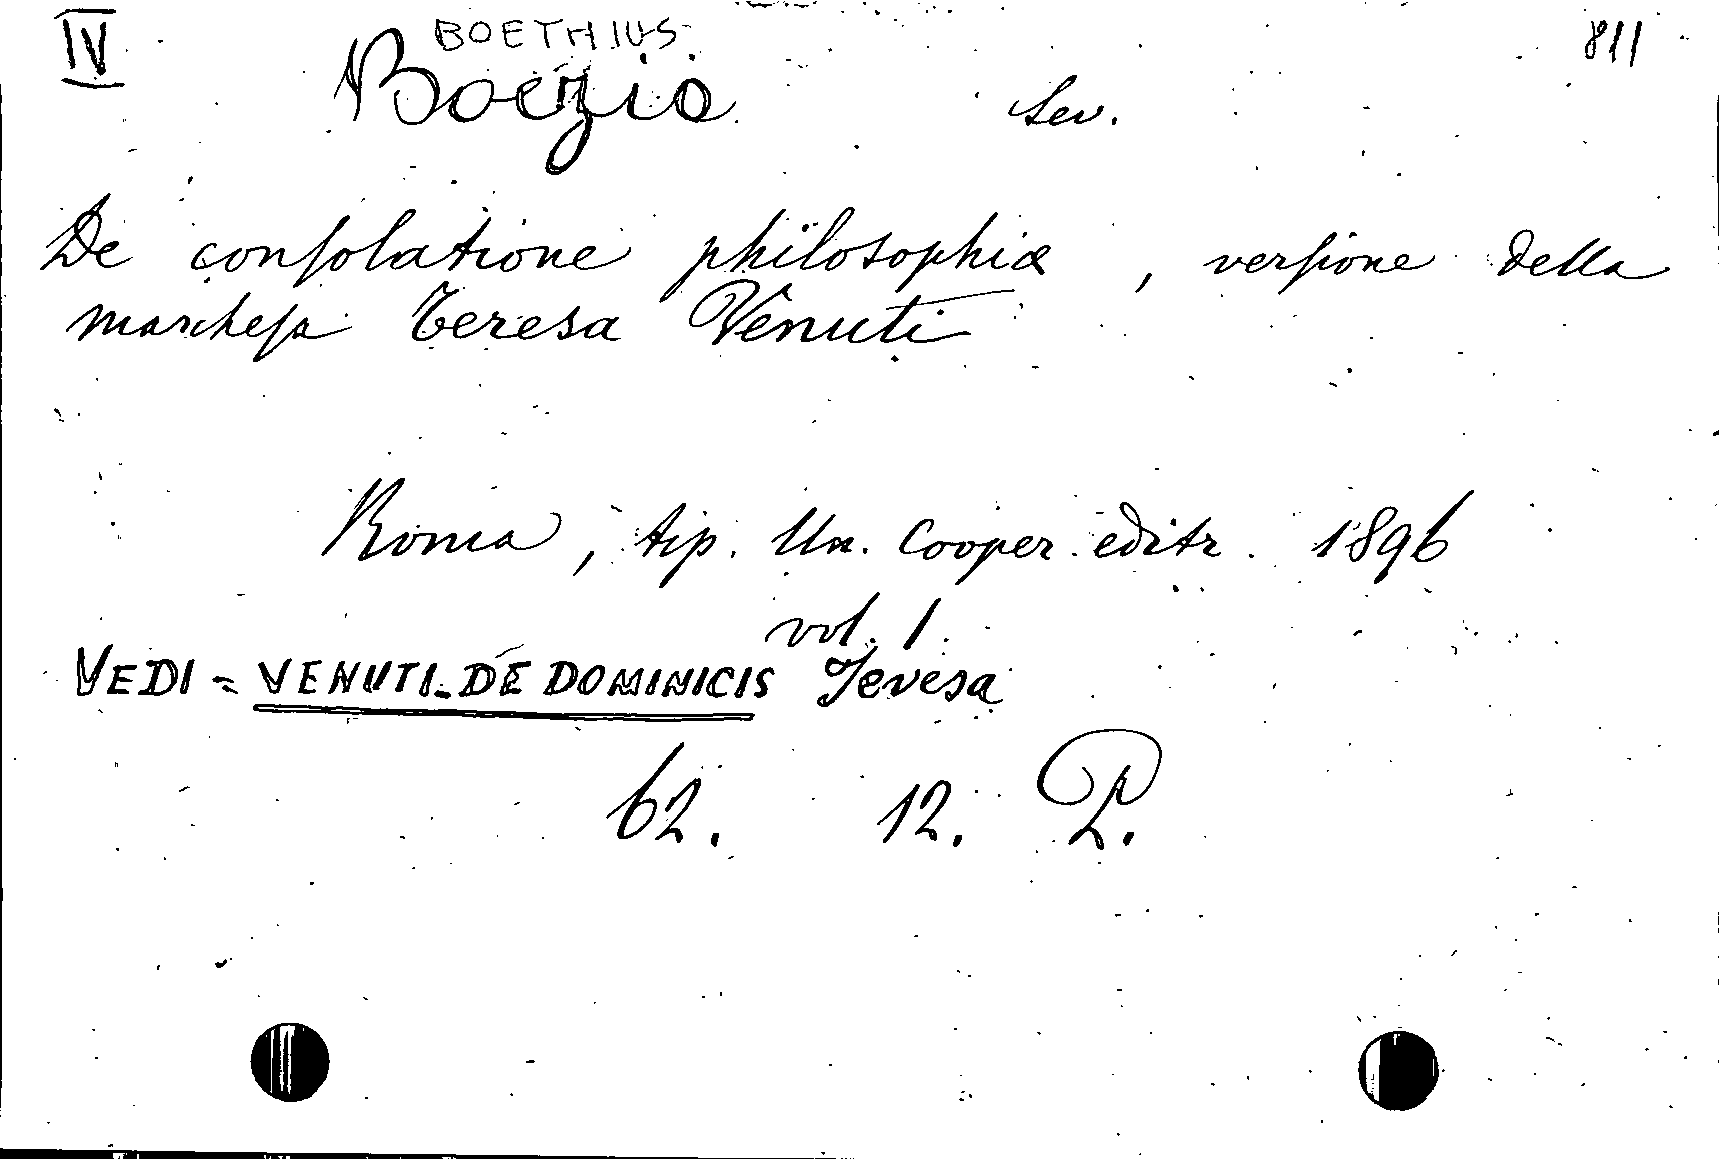 IV BOETHIUS 811
Boezio Sev.
De consolatione philosophiæ, versione della
marchesa Teresa Venuti
Roma, tip. Un. Cooper. editr. 1896
vol. 1.
VEDI = VENUTI-DE DOMINICIS Teresa
62. 12. P.